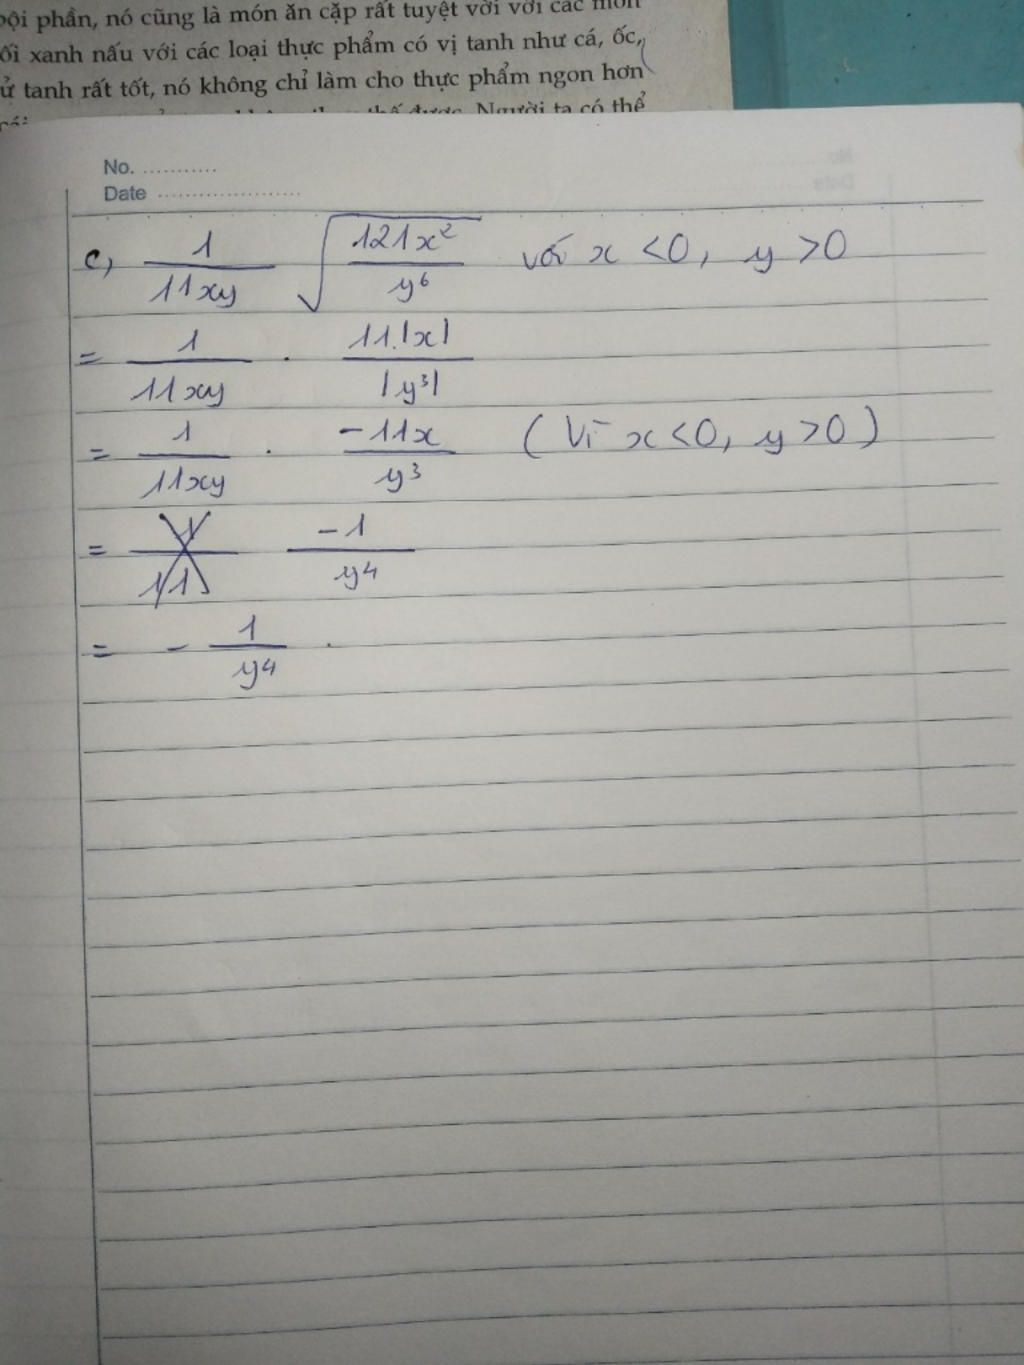 bội phần, nó cũng là món ăn cặp rất tuyệt vời với các món
ối xanh nấu với các loại thực phẩm có vị tanh như cá, ốc,
ử tanh rất tốt, nó không chỉ làm cho thực phẩm ngon hơn
thế được. Người ta có thể
No. ............
Date ........................
c, \frac{1}{11xy} \sqrt{\frac{121x^2}{y^6}} với x <0, y >0
= \frac{1}{11xy} . \frac{11.|x|}{|y^3|}
= \frac{1}{11xy} . \frac{-11x}{y^3} (Vì x <0, y >0)
= \frac{-1}{y^4}
= - \frac{1}{y^4} .